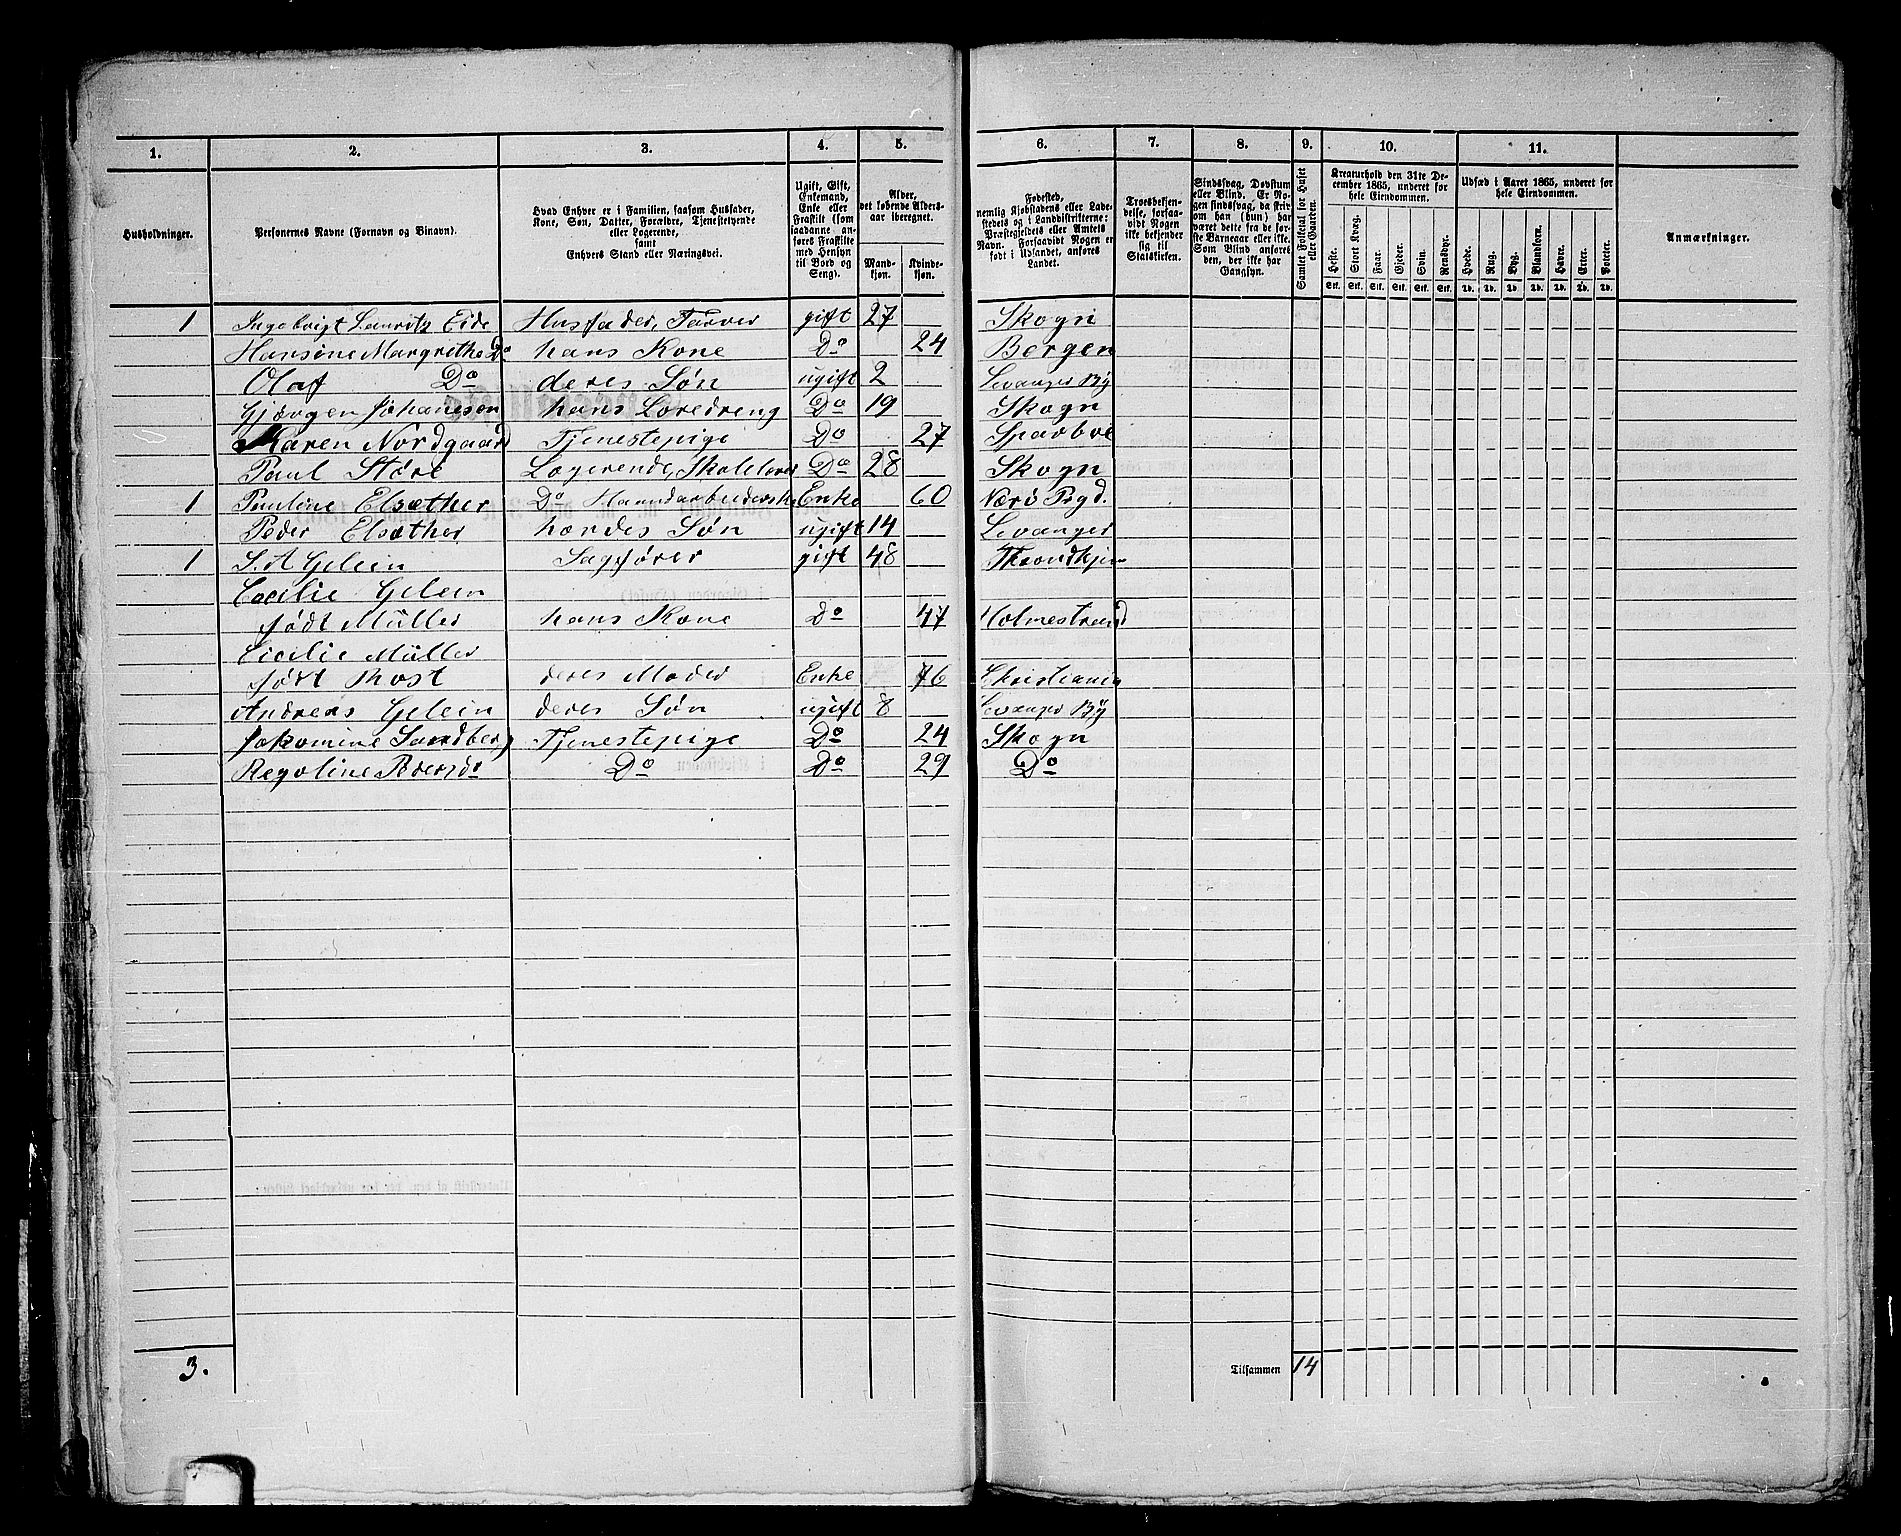 1. 2. 3. 4. 5. 6. 7. 8. 9. 10. 11.
Husholdninger.
Personernes Navne (Fornavn og Binavn).
Hvad Enhver er i Familien, saasom Husfader, Kone, Søn, Datter, Forældre, Tjenestetyende eller Logerende, samt Enhvers Stand eller Næringsvei.
Ugift, Gift, Enkemand, Enke eller Fraskilt (som saadanne anføres Fraskilte med Hensyn til Bord og Seng).
Alder, det løbende Aldersaar iberegnet.
Mandkjøn. Kvindekjøn.
Fødested, nemlig Kjøbstadens eller Ladestedets og i Landdistrikterne: Præstegjeldets eller Amtets Navn. Forsaavidt Nogen er født i Udlandet, anføres Landet.
Troesbekjendelse, forsaavidt Nogen ikke bekjender sig til Statskirken.
Sindssvag, Døvstum eller Blind. Er Nogen sindssvag, da skrives om han (hun) har været dette fra de første Barneaar eller ikke. Som Blind anføres den, der ikke har Gangsyn.
Samlet Folketal for Huset eller Gaarden.
Kreaturhold den 31te December 1865, underet for hele Eiendommen.
Heste. Stort Kvæg. Faar. Gjeder. Svin. Rensdyr.
Stk. Stk. Stk. Stk. Stk. Stk.
Udsæd i Aaret 1865, underet for hele Eiendommen.
Hvede. Rug. Byg. Blandkorn. Havre. Erter. Poteter.
Td. Td. Td. Td. Td. Td. Td.
Anmærkninger.
1 Ingebrigt Lauritz Eide Husfader, Farver gift 27 Skogn
Hansine Margrethe Do hans Kone Do 24 Bergen
Olaf Do deres Søn ugift 2 Levanger By
Gjørgen Johanesen hans Læredreng Do 19 Skogn
Karen Nordgaard Tjenestepige Do 27 Sparboe
Paul Støre Logerende, Skolelærer Do 28 Skogn
1 Pauline Elsæther Do Haandarbeiderske Enke 60 Nærö Prgd.
Peder Elsæther hendes Søn ugift 14 Levanger
1 S. A Gelein Sagfører gift 48 Throndhjem
Cecilie Gelein
født Müller hans Kone Do 47 Holmestrand
Cicilie Müller
født Rost deres Moder Enke 76 Christiania
Andreas Gelein deres Søn ugift 8 Levanger By
Jakomine Sandberg Tjenestepige Do 24 Skogn
Regoline Pedersdo Do Do 29 Do
3. Tilsammen 14